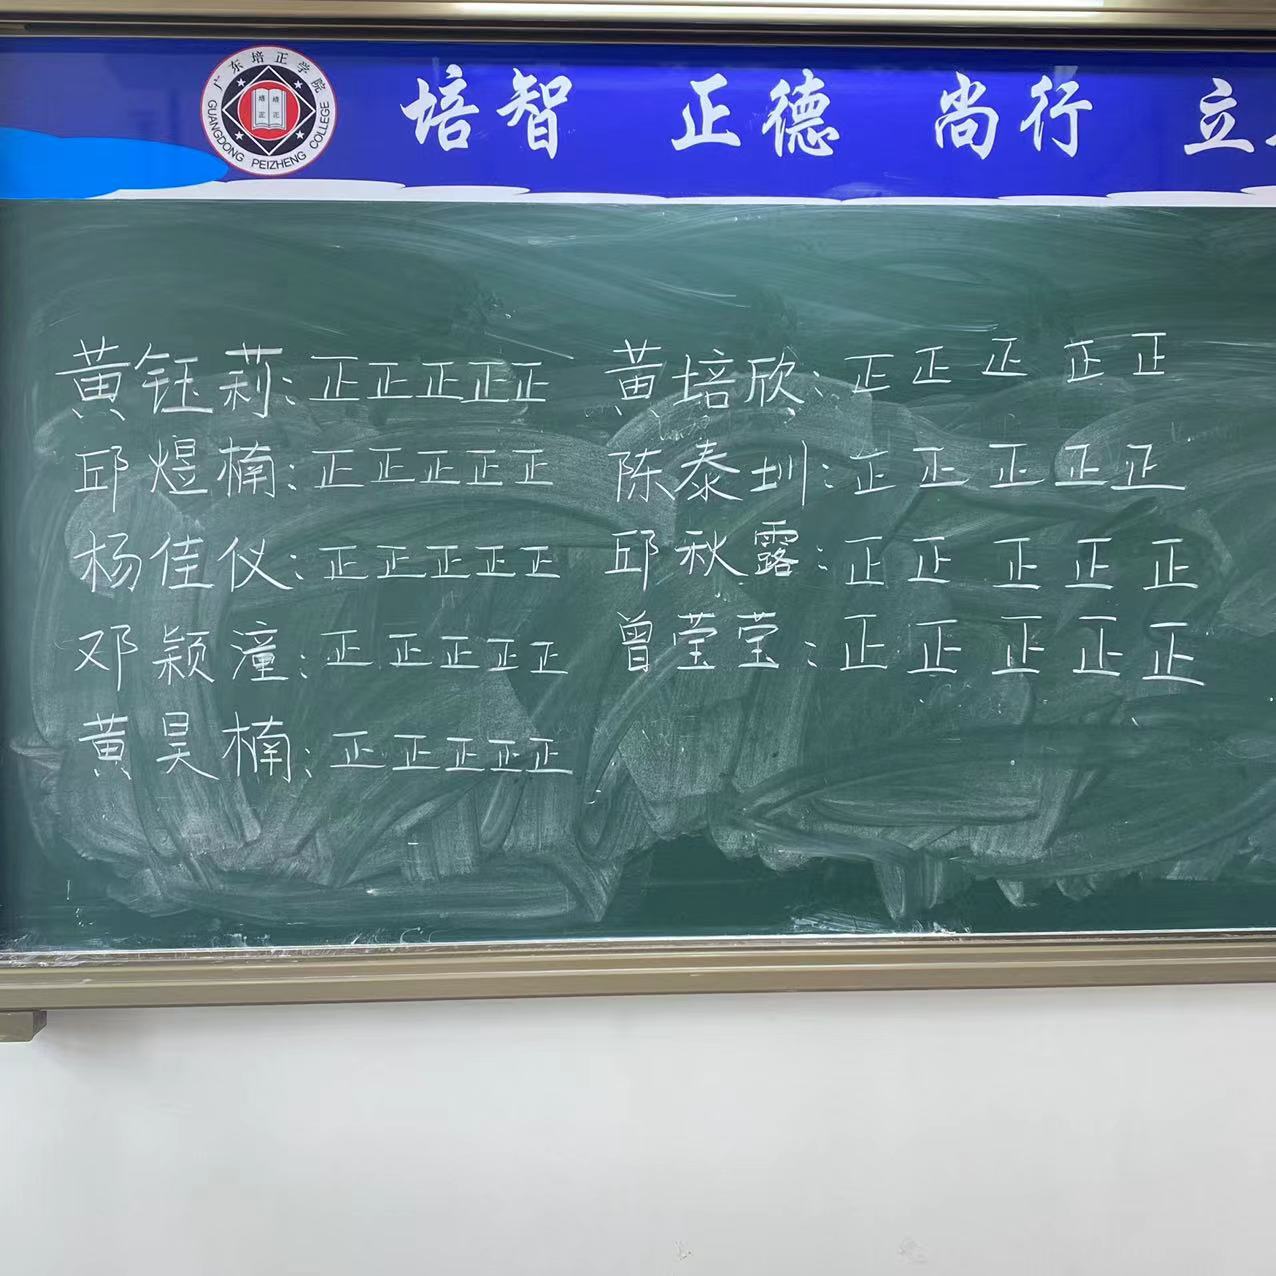 广东培正学院
GUANGDONG PEIZHENG COLLEGE
培智 正德 尚行 立
黄钰莉:正正正正正
邱煜楠:正正正正正
杨佳仪:正正正正正
邓颖潼:正正正正正
黄昊楠:正正正正正
黄培欣:正正正正正
陈泰圳:正正正正正
邱秋露:正正正正正
曾莹莹:正正正正正